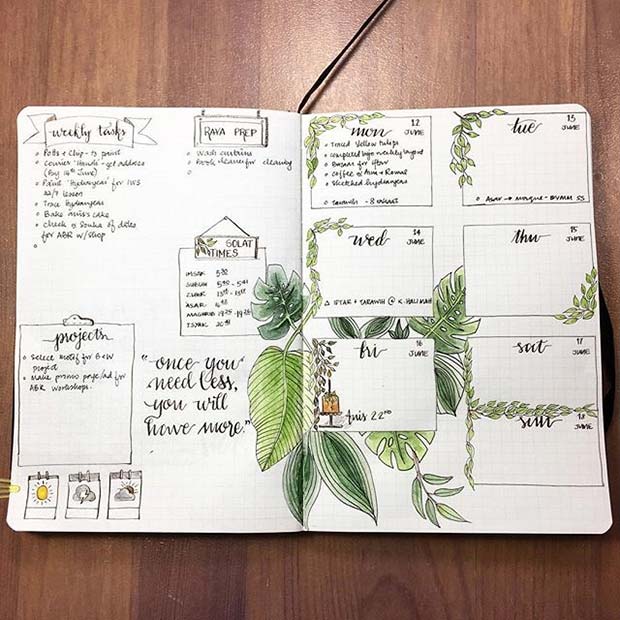 weekly tasks
Potts + Chip - to print
Courier 'Hands' - get address
(by 14th June)
Paint 'Hydrangeas' for IWS
22/7 lesson
Trace hydrangeas
Bake Anis's cake
Check
for ABR w/shop
RAYA PREP
Wash curtains
Book cleaner for cleaning
SOLAT
TIMES
IMSAK 5:32
SUBUH 5:40 - 5:41
ZUHR
ASAR
MAGHRIB
ISYAK
projects
Select motif for B&W
project
Make promo page/ad for
ABR workshops.
"once you
need less,
you will
have more."
mon
12
JUNE
Traced Yellow tulips
Completed bujo weekly layout
Bazaar for iftar
Coffee
Sketched hydrangeas
Tarawih - 8 rakaat
tue
13
JUNE
Asar → Mosque
wed
14
JUNE
IFTAR + TARAWIH @ K. HALIMAH
thu
15
JUNE
fri
16
JUNE
Anis 22nd
sat
17
JUNE
sun
18
JUNE